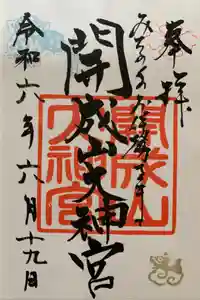 奉拝
みちのくのお伊勢さま
開成山大神宮
開成山
大神宮
令和六年六月十九日